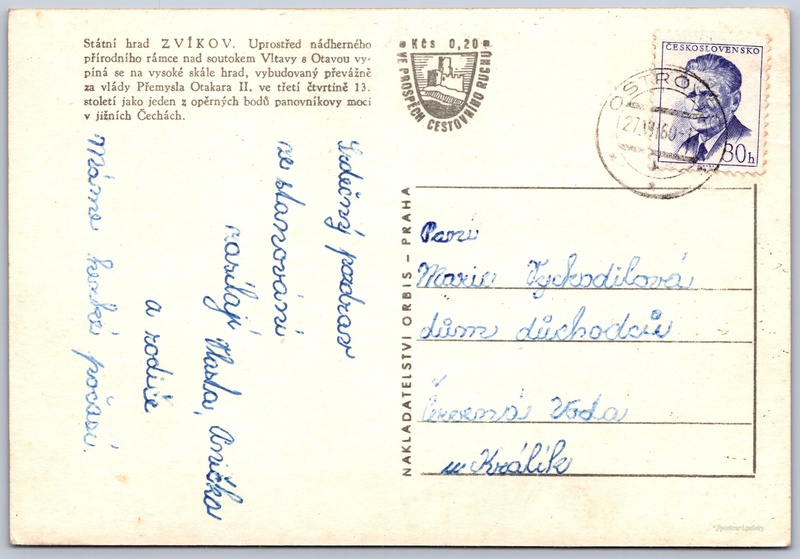 Státní hrad ZVÍKOV. Uprostřed nádherného
přírodního rámce nad soutokem Vltavy s Otavou vy-
píná se na vysoké skále hrad, vybudovaný převážně
za vlády Přemysla Otakara II. ve třetí čtvrtině 13.
století jako jeden z opěrných bodů panovníkovy moci
v jižních Čechách.
Kčs 0,20
VE PROSPĚCH CESTOVNÍHO RUCHU
ČESKOSLOVENSKO
30h
27.VII.60
Srdečný pozdrav
ze stanování
zasílají Vlasta, Anička
a rodiče
Máme hezké počasí.
NAKLADATELSTVÍ ORBIS – PRAHA
Paní
Marie Vychodilová
dům důchodců
Červená Voda
u Králík